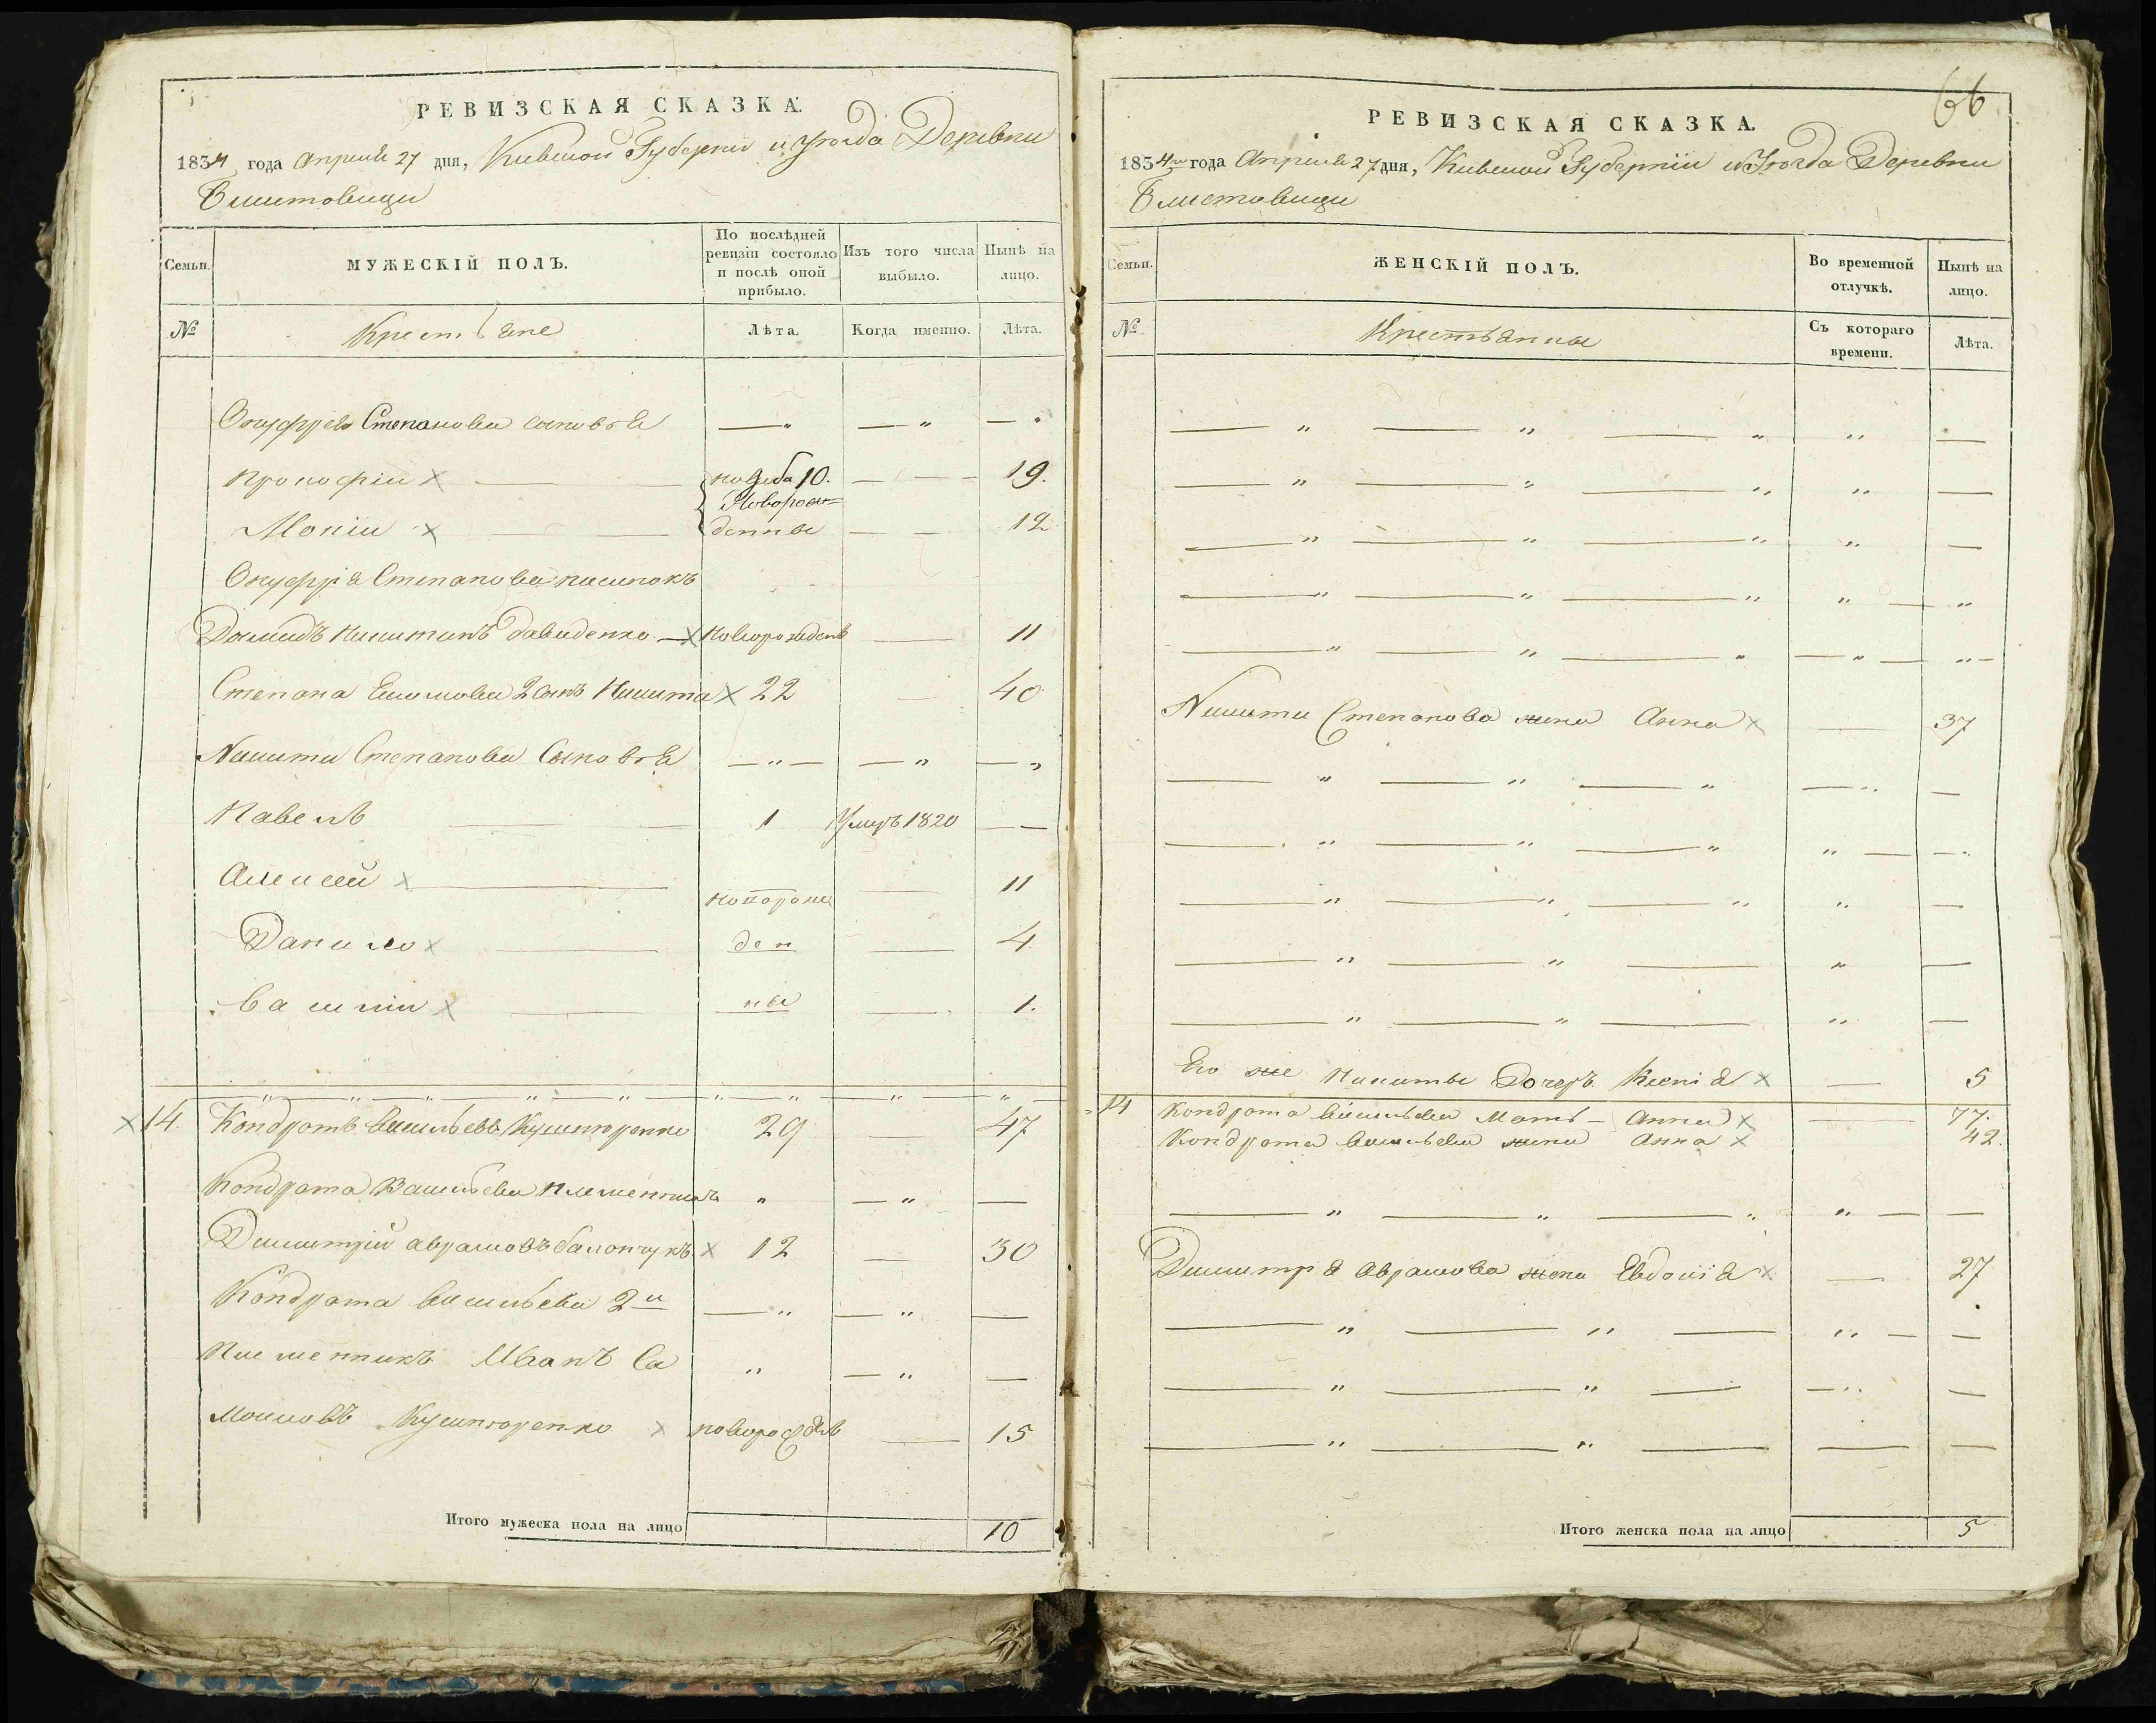 РЕВИЗСКАЯ СКАЗКА.
1834 года Апреля 27 дня, Киевской Губернии и уѣзда Деревни
МУЖЕСКІЙ ПОЛЪ.
Семьи.
По послѣдней ревизіи состояло и послѣ оной прибыло.
Изъ того числа выбыло.
Нынѣ на лицо.
№
Крестьяне
Лѣта.
Когда именно.
Лѣта.
Онуфрея Степанова сыновья — „ — „ — „
Прокофій × — 10. — — 19.
Моисій × — — Новорож=
денны — — 12
Онуфрія Степанова пасинокъ
Демидъ Никитинъ Давиденко — × новорожденъ — 11
Степана 2 сынъ Никита × 22 — 40
Никиты Степанова Сыновья — „ — — „ — „
Павелъ — — 1 Умеръ 1820 — —
Алексей × — новорож — 11
Данило × — ден — 4
Василій × — ны — 1.
× 14. Кондратъ Васильевъ Кушниренко 29 — 47
Кондрата Васильева племенникъ „ — „ —
Димитрій Аврамовъ × 12 — 30
Кондрата Васильева 2й — „ — „ —
племенникъ Иванъ Са „ — „ —
мойловъ Кушниренко × новорожденъ — 15
Итого мужеска пола на лицо 10
66
РЕВИЗСКАЯ СКАЗКА.
1834го года Апреля 27 дня, Киевской Губерніи и Уѣзда Деревни
Семьи.
ЖЕНСКІЙ ПОЛЪ.
Во временной отлучкѣ.
Нынѣ на лицо.
№
Крестьянки
Съ котораго времени.
Лѣта.
Никиты Степанова жена Анна × — 37
Его же Никиты Дочерь Ксенія × — 5
14 Кондрата Васильева Мать — Анна × — 77.
Кондрата Васильева жена Анна × 42.
Димитрія Аврамова жена Евдокія × — 27
Итого женска пола на лицо 5